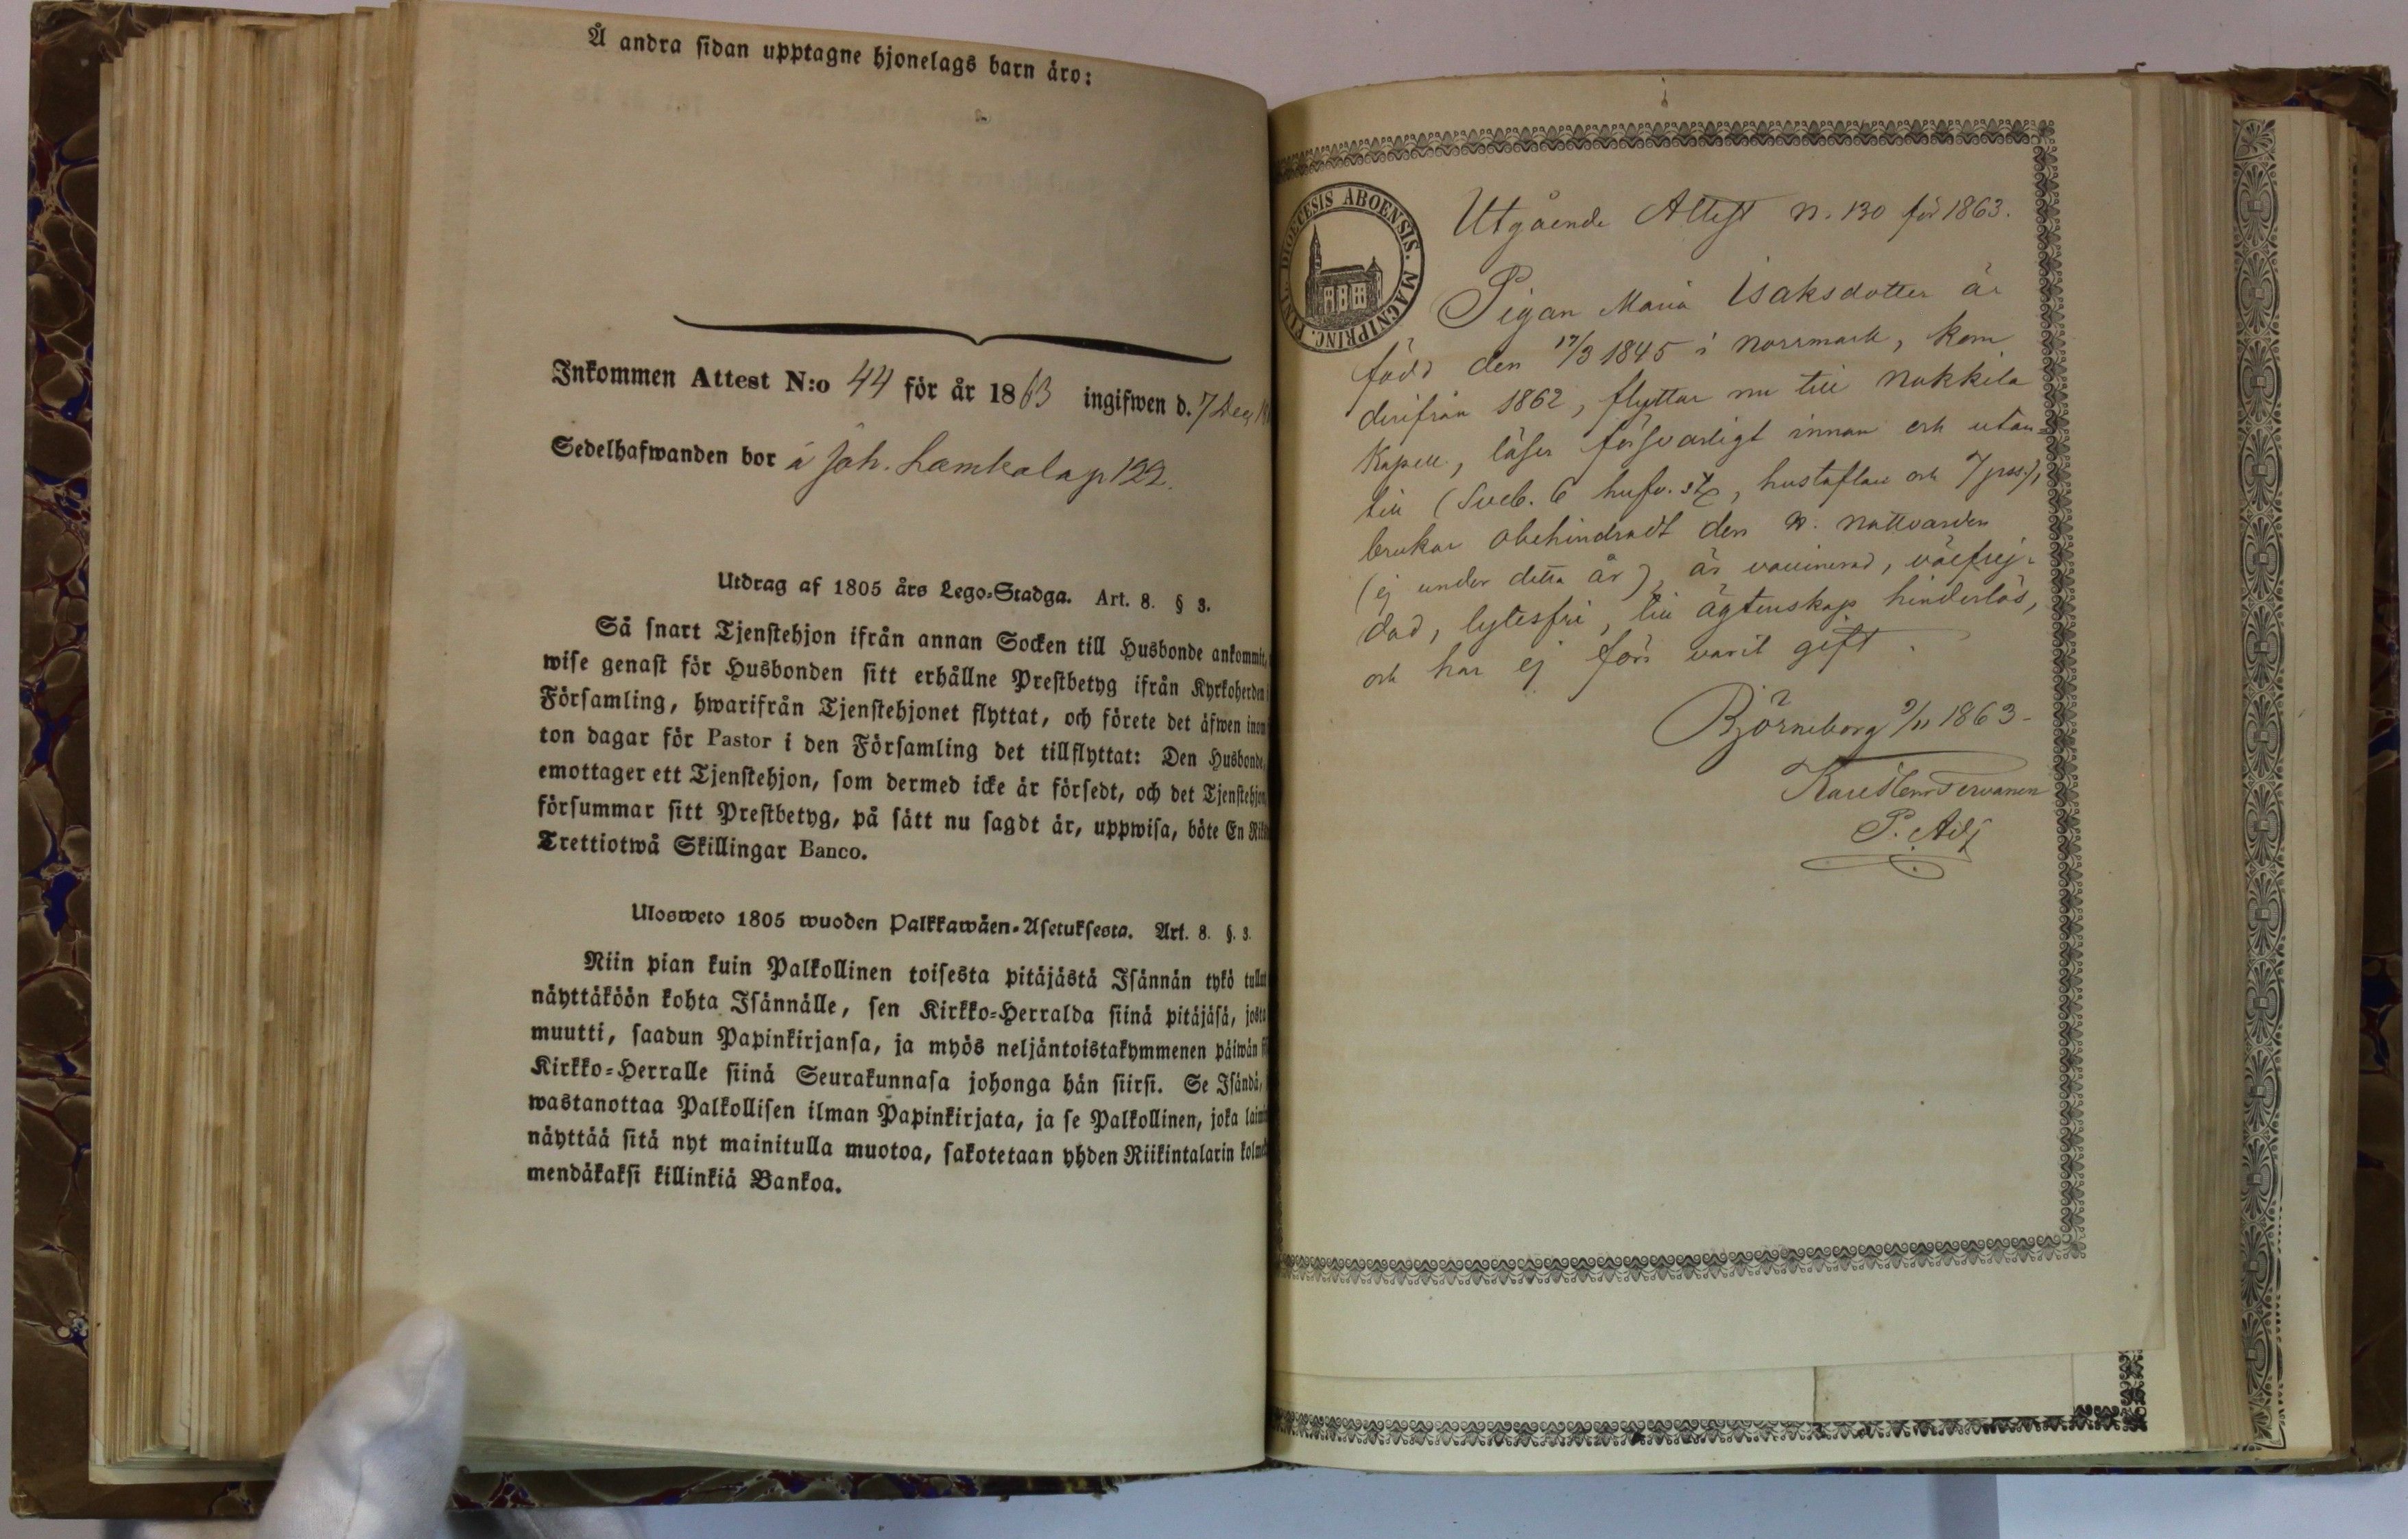 Å andra sidan upptagne hjonelags barn äro:
Inkommen Attest N:o 44 för år 1863 ingifwen d. 7 Dec
Sedelhafwanden bor å Joh. Lamkala p 122.
Utdrag af 1805 års Lego-Stadga. Art. 8. § 3.
Så snart Tjenstehjon ifrån annan Socken till Husbonde ankommit,
wise genast för Husbonden sitt erhållne Prestbetyg ifrån Kyrkoherden i
Församling, hwarifrån Tjenstehjonet flyttat, och förete det äfwen inom
ton dagar för Pastor i den Församling det tillflyttat: Den Husbonde,
emottager ett Tjenstehjon, som dermed icke är försedt, och det Tjenstehjon,
försummar sitt Prestbetyg, på sätt nu sagdt är, uppwisa, böte En
Trettiotwå Skillingar Banco.
Ulosweto 1805 wuoden Palkkawäen-Asetuksesta. Art. 8. §. 3.
Niin pian kuin Palkollinen toisesta pitäjästä Isännän tykö tullut
näyttäköön kohta Isännälle, sen Kirkko-Herralda siinä pitäjäsä, josta
muutti, saadun Papinkirjansa, ja myös neljäntoistakymmenen päiwän
Kirkko-Herralle siinä Seurakunnasa johonga hän siirsi. Se Isändä,
wastanottaa Palkollisen ilman Papinkirjata, ja se Palkollinen, joka
näyttää sitä nyt mainitulla muotoa, sakotetaan yhden Riikintalarin
mendäkaksi killinkiä Bankoa.
DIOECESIS ABOENSIS. MAGNIPRINC. FINL.
Utgående Attest n. 130 för 1863.
Pigan Maria Isaksdotter är
född den 17/3 1845 i Norrmark, kom
derifrån 1862, flyttar nu till Nakkila
Kapell, läser försvarligt innan och utan=
till (Sveb. 6 hufv. st, hustaflan och 7 pss.),
brukar obehindradt den H. Nattvarden
(ej under detta år), är vaccinerad, välfrej-
dad, lytesfri, till ägtenskap hinderlös,
och har ej förr varit gift.
Björneborg 9/11 1863-
Karl Henr Tervanen
P. Adj